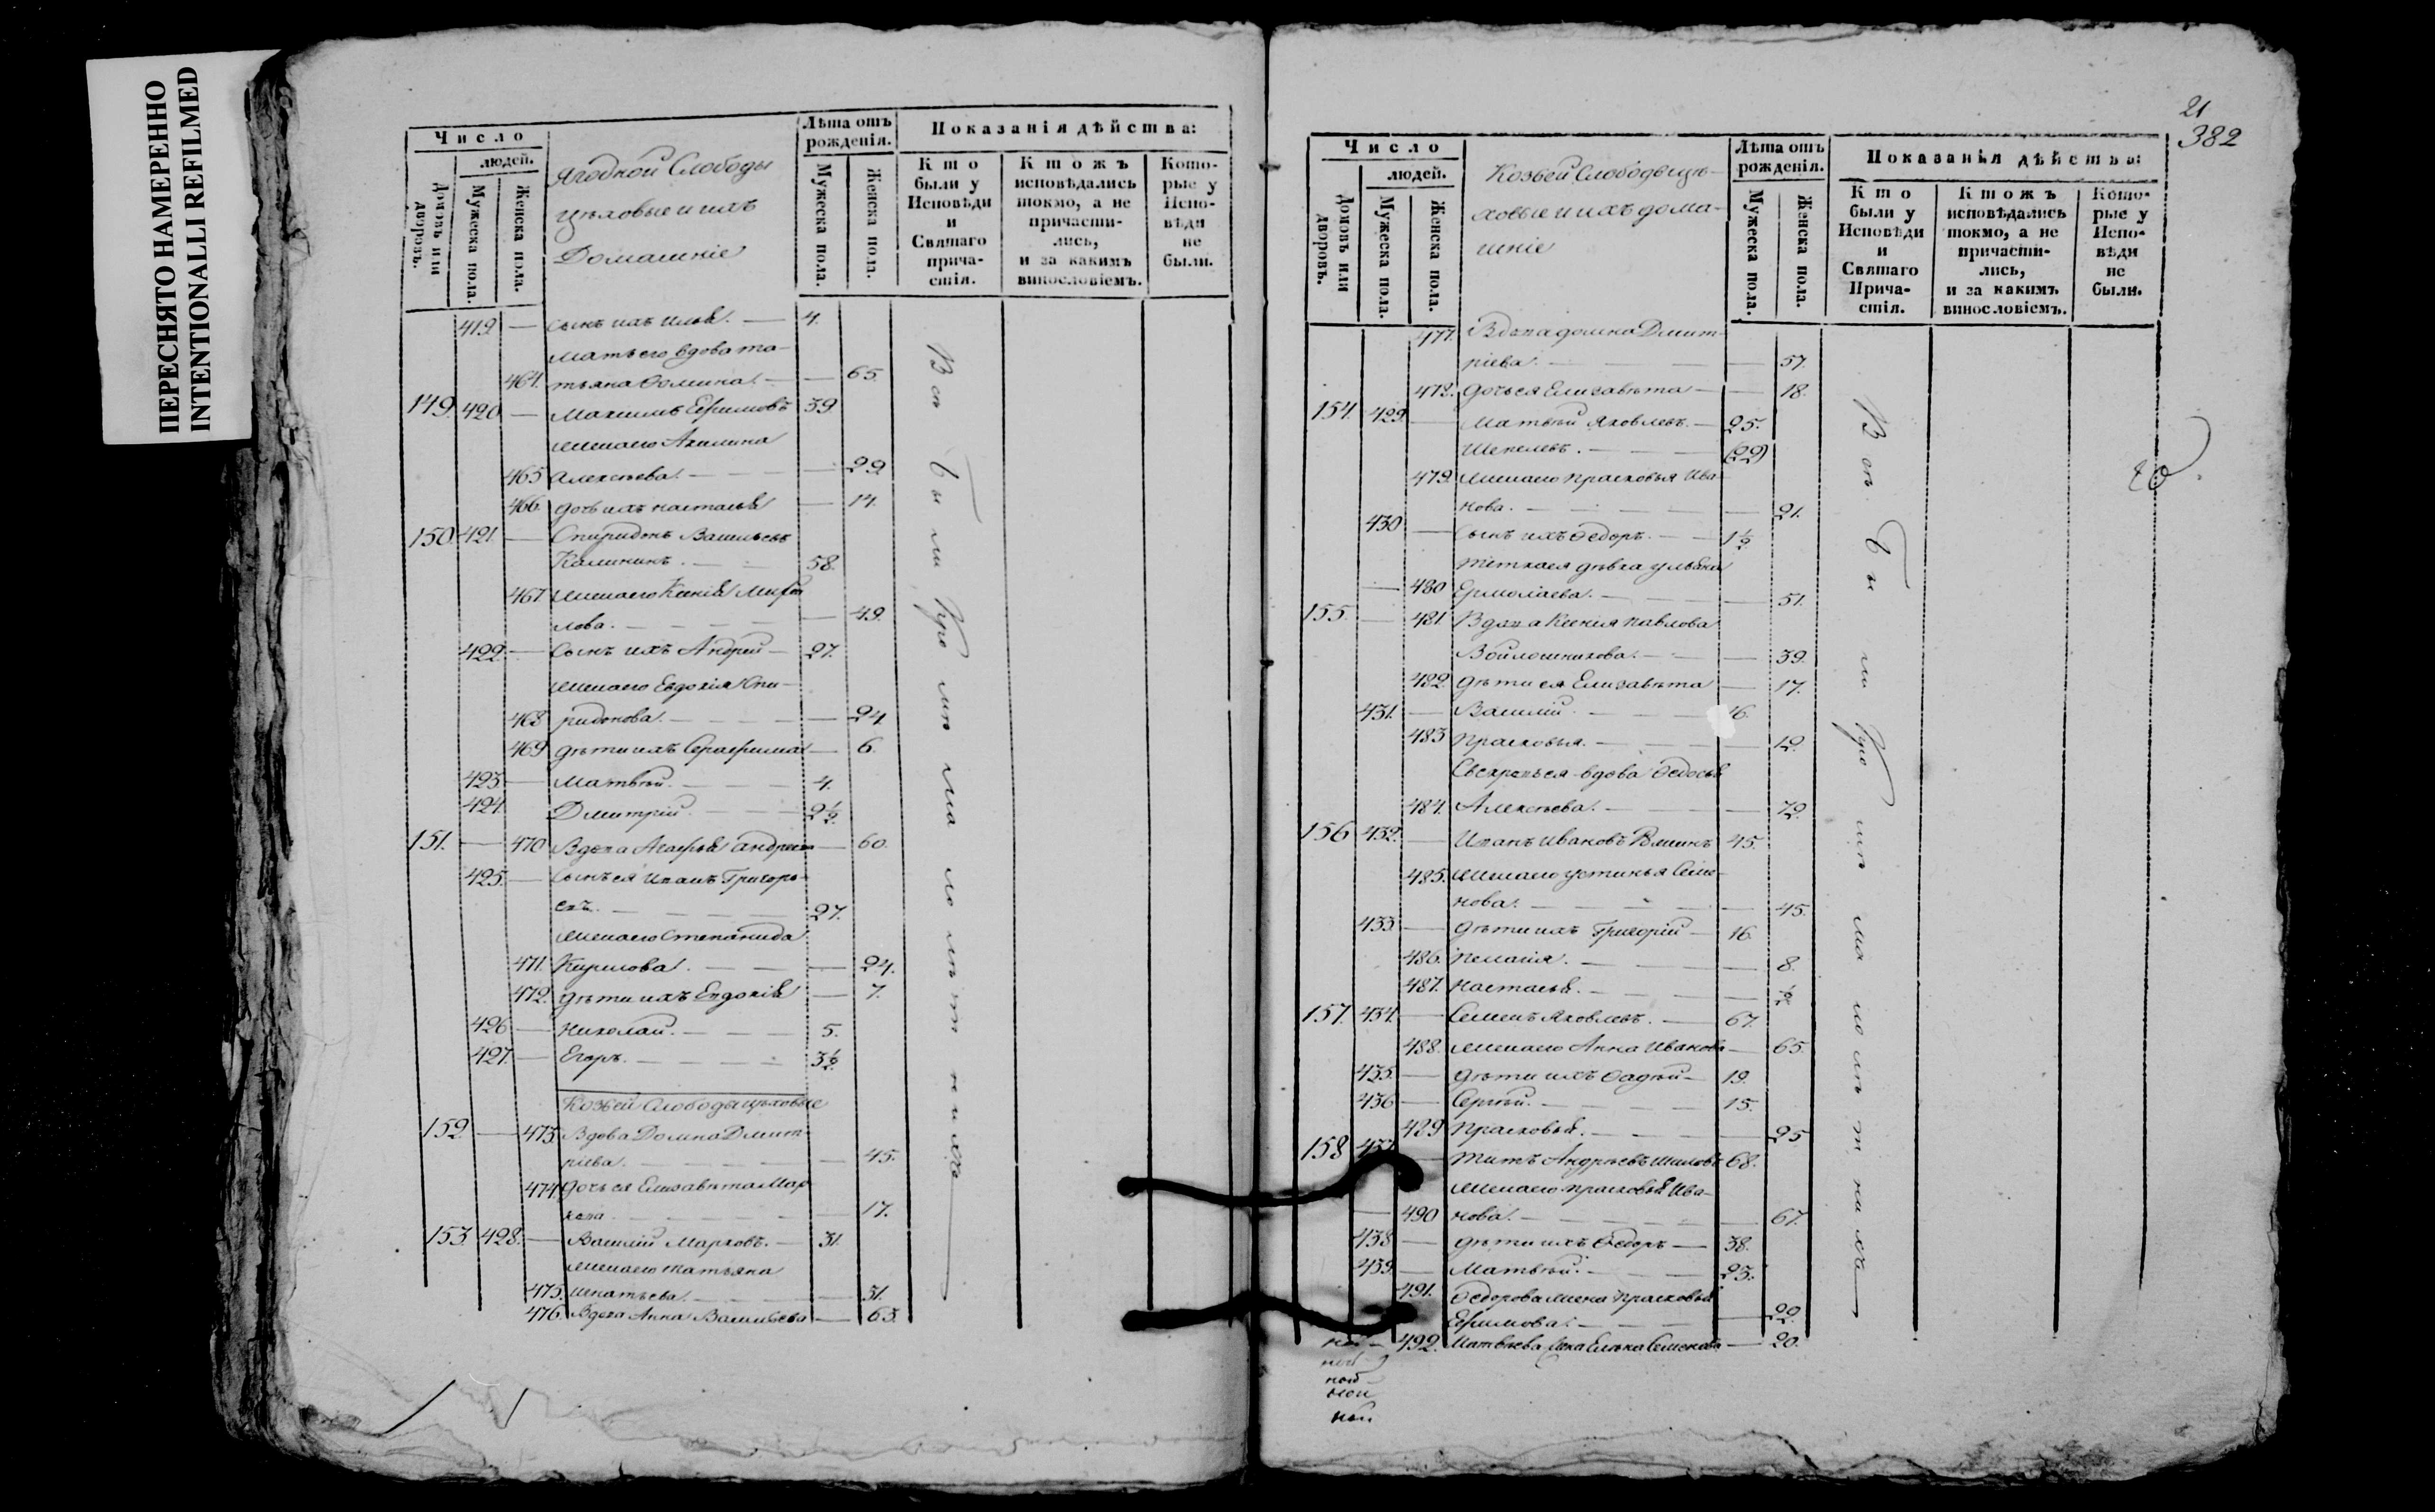 ПЕРЕСНЯТО НАМЕРЕННО
INTENTIONALLI REFILMED
Число
людей.
Домовъ или дворовъ.
Мужеска пола.
Женска пола.
Ягодной Слободы
цѣховые и ихъ
Домашніе
Лѣта отъ рожденія.
Мужеска пола.
Женска пола.
Показанія дѣйства:
Кто были у Исповѣди и Святаго причастія.
Ктожъ исповѣдались токмо, а не причастились, и за какимъ винословіемъ.
Которые у Исповѣди не были.
419 — сынъ ихъ Илья. — 4.
мать его вдова Та-
464. тьяна Фомина. — — 65.
149. 420 — Максимъ Ефимовъ 39.
жена его Акилина
465 Алексѣева. — — 29
466. дочь ихъ Настасья — 14.
150. 421. — Спиридонъ Васильевъ
Калининъ. — 58.
467. жена его Ксенія Михай
лова. — — 49.
422 — Сынъ ихъ Андрей — 27.
жена его Евдокія Спи-
468 ридонова. — — 24.
469 дѣти ихъ Серафима — 6.
423 — Матвѣй. — 4.
424. Дмитрій — 2½.
151. — 470 Вдова Агафья Андреева — 60.
425. — Сынъ ея Иванъ Григорь-
евъ. — 27.
жена его Степанида
471. Кирилова. — — 24.
472. дѣти ихъ Евдокія — 7.
426 — Николай. — 5.
427. — Егоръ. — 3½
Козьей Слободы цѣховые
152 — 473. Вдова Домна Дмит-
ріева. — — 45.
474. дочь ея Елизавета Мар-
кова — — 17.
153. 428. — Василій Марковъ. — 31.
жена его Татьяна
475. Игнатьева. — — 31.
476. Вдова Анна Васильева — 63.
Всѣ были кромѣ малолѣтниже
21
382
Число
людей.
Домовъ или дворовъ.
Мужеска пола.
Женска пола.
Козьей Слободы цѣ-
ховые и ихъ дома-
шніе
Лѣта отъ рожденія.
Мужеска пола.
Женска пола.
Показанія дѣйства:
Кто были у Исповѣди и Святаго Причастія.
Ктожъ исповѣдались токмо, а не причастились, и за какимъ винословіемъ.
Которые у Исповѣди не были.
477. Вдова Домна Дмит-
ріева. — — 57.
478. дочь ея Елизавета — — 18.
154. 429. — Матвѣй Яковлевъ. — 25.
Шепелевъ. — (22)
479. жена его Прасковья Ива-
нова. — — 21.
430 — Сынъ ихъ Федоръ. — 1½
тетка ея дѣвка Ульяна
— 480 Ермолаева. — — 51.
155. — 481. Вдова Ксенія Павлова
Войлошникова. — — 39.
482. дѣти ея Елизавета — 17.
431. — Василій — 16.
483 Прасковья. — — 12.
Свекровь ея вдова Федосья
484. Алексѣева. — — 72.
156 432. — Иванъ Ивановъ 45.
485. жена его Устинья Семе-
нова. — — 45.
433. — дѣти ихъ Григорій — 16.
486. Пелагія. — — 8.
487. Настасья. — — ½
157. 434. — Семенъ Яковлевъ. — 67.
488. жена его Анна Иванова — 65.
435. — дѣти ихъ Фадѣй — 19.
436 — Сергѣй. — 15.
489 Прасковья. — — 25
158 437. — Титъ Андрѣевъ Шиловъ 68.
жена его Прасковья Ива-
— 490 нова. — — 67.
438 — дѣти ихъ Федоръ — 38.
439. — Матвѣй. — 23.
491. Федорова жена Прасковья
Ефимова. — — 22.
492. Матвѣева жена Елена Семенова — 20.
Всѣ были кромѣ малолѣтниже